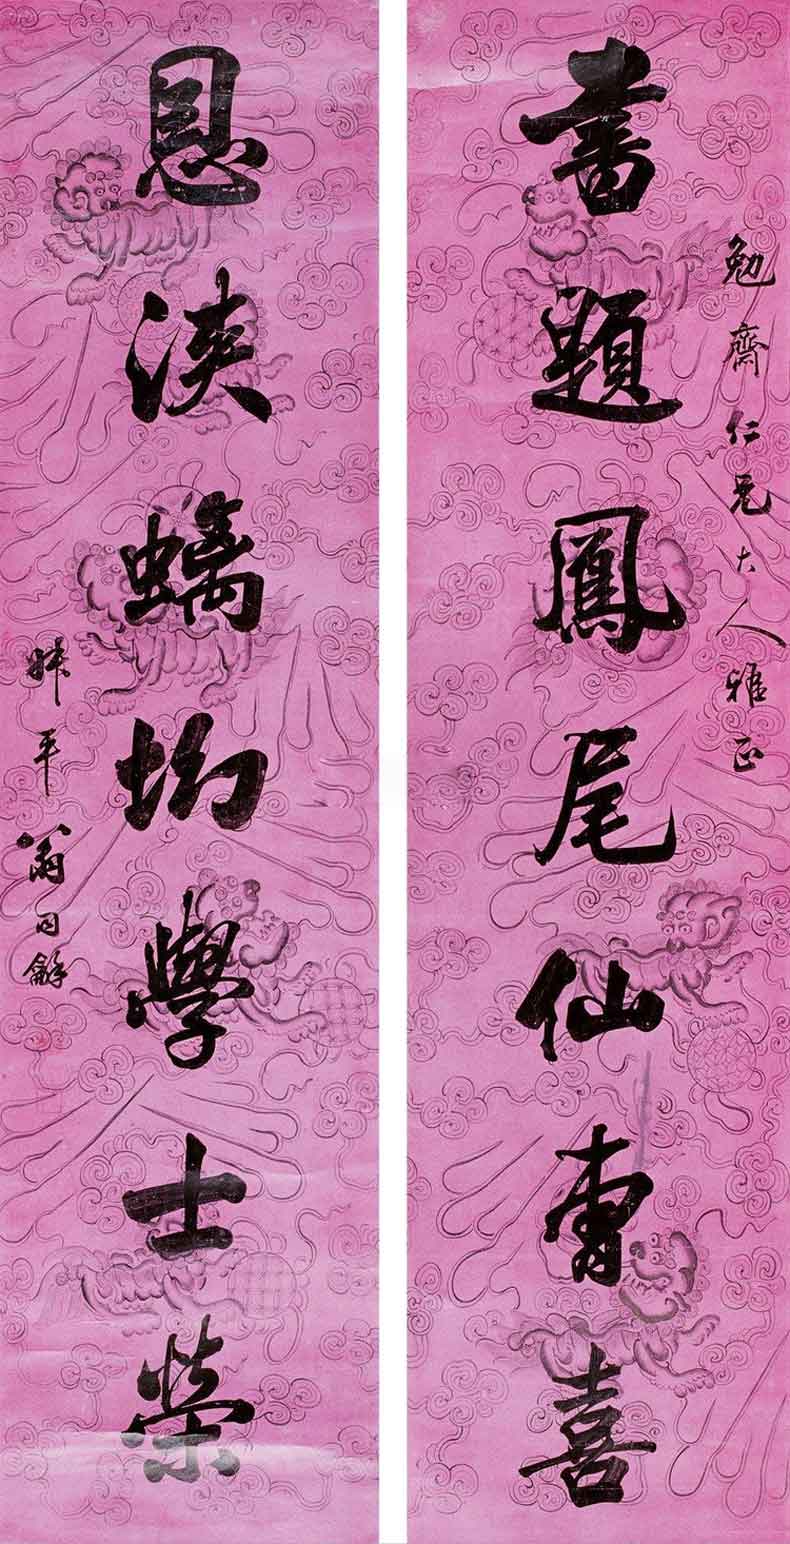 勉齋仁兄大人雅正
書題鳳尾仙曹喜
恩浹螭坳學士榮
叔平翁同龢